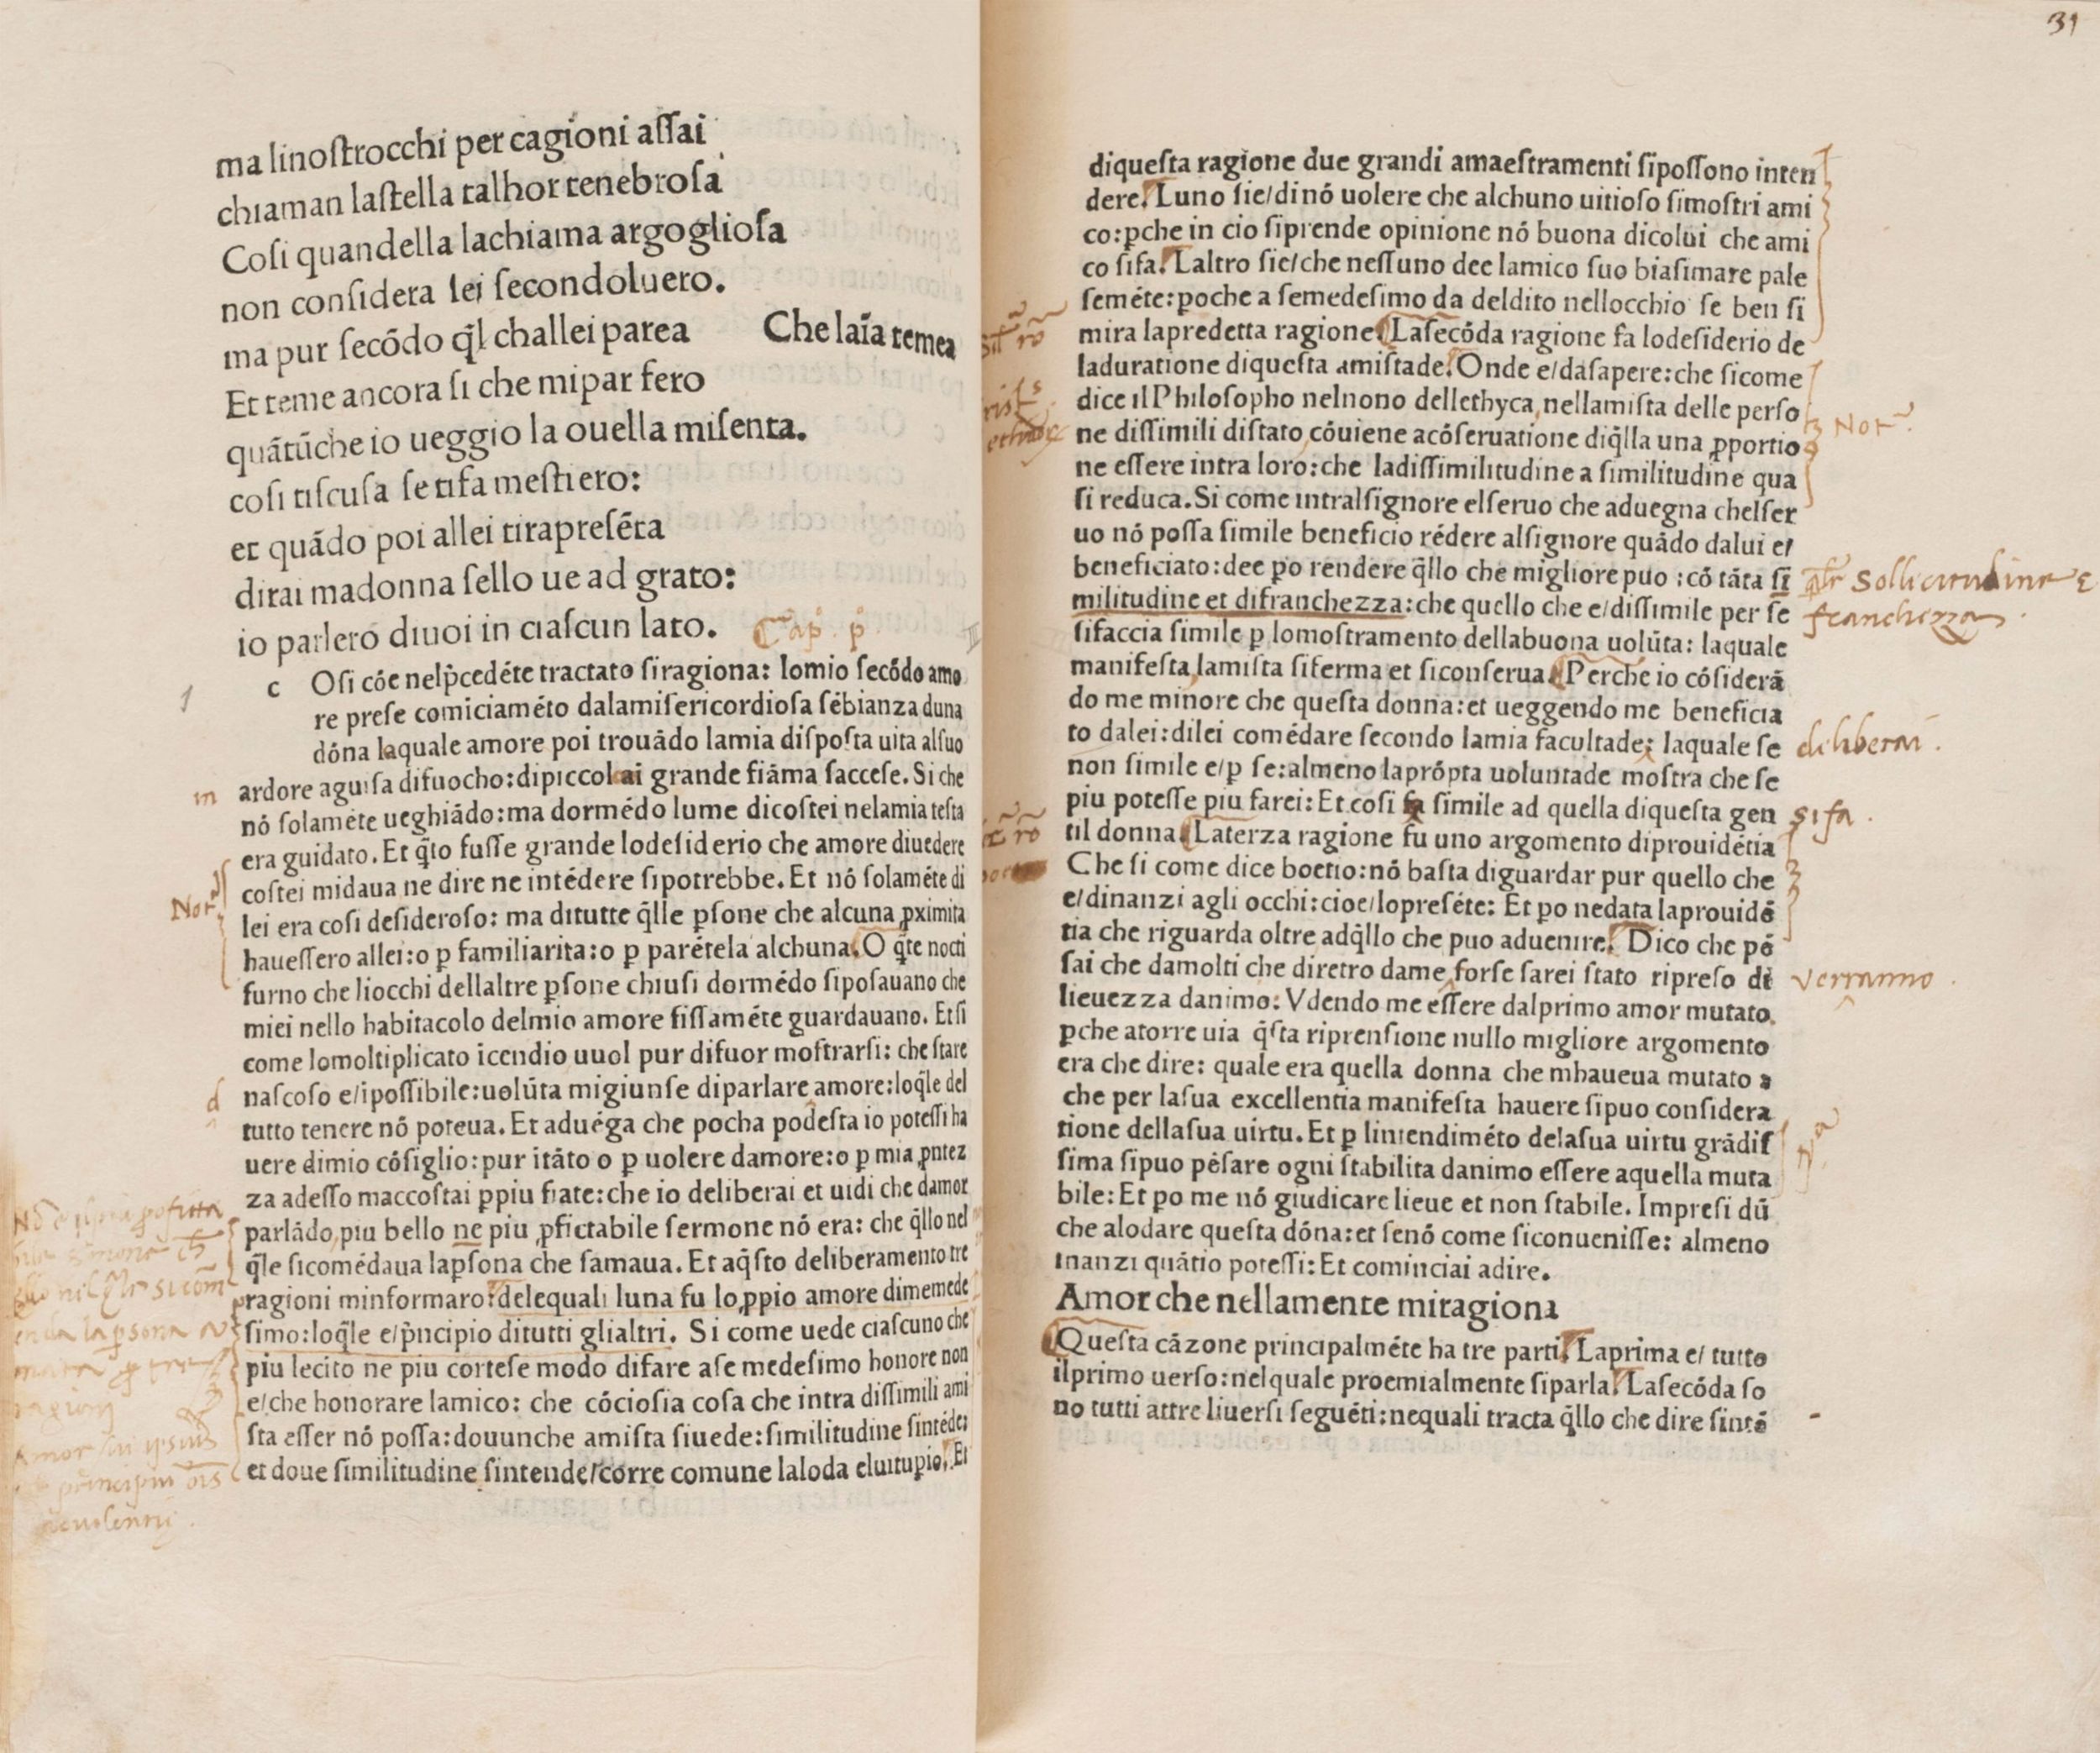 ma linoſtrocchi per cagioni aſſai
chiaman laſtella talhor tenebroſa
Coſi quandella lachiama argoglioſa
non conſidera lei ſecondoluero.
ma pur ſecōdo q̄l challei parea Che laīa temea
Et teme ancora ſi che mipar fero
quātūche io ueggio la ouella miſenta.
coſi tiſcuſa ſe tifa meſtiero:
et quādo poi allei tirapreſēta
dirai madonna ſello ue ad grato:
io parlero diuoi in ciaſcun lato. Cap. p.
1 c Oſi cóe nelp̄cedéte tractato ſiragiona: lomio ſecódo amo
re preſe comiciaméto dalamiſericordioſa ſēbianza duna
dóna laquale amore poi trouādo lamia diſpoſta uita alſuo
in ardore aguiſa difuocho: dipiccol ai grande fiāma ſacceſe. Si che
nó ſolaméte ueghiādo: ma dormédo lume dicoſtei nelamia teſta
era guidato. Et q̄to fuſſe grande lodeſiderio che amore diuedere
coſtei midaua ne dire ne intédere ſipotrebbe. Et nó ſolaméte di
Nota lei era coſi deſideroſo: ma ditutte q̄lle ꝑſone che alcuna ꝓximita
haueſſero allei: o ꝑ familiarita: o ꝑ parétela alchuna. O q̄te nocti
furno che liocchi dellaltre ꝑſone chiuſi dormédo ſipoſauano che
miei nello habitacolo delmio amore fiſſaméte guardauano. Et ſi
come lomoltiplicato īcendio uuol pur difuor moſtrarſi: che ſtare
d naſcoſo e/ ipoſſibile: uolúta migiunſe diparlare amore: loq̄le del
tutto tenere nó poteua. Et aduéga che pocha podeſta io poteſſi ha
uere dimio cóſiglio: pur itāto o ꝑ uolere damore: o ꝑ mia ꝓntez
za adeſſo maccoſtai ꝑpiu fiate: che io deliberai et uidi che damor
parlādo, piu bello ne piu ꝓfictabile ſermone nó era: che q̄llo nel
q̄le ſicomédaua lapſona che ſamaua. Et aq̄ſto deliberamento tre
ragioni minformaro: delequali luna fu lo ꝓpio amore dimemede
ſimo: loq̄le e/ p̄ncipio ditutti glialtri. Si come uede ciaſcuno che
piu lecito ne piu corteſe modo difare aſe medeſimo honore non
e/ che honorare lamico: che cócioſia coſa che intra diſſimili ami
ſta eſſer nó poſſa: douunche amiſta ſiuede: ſimilitudine ſintéde:
et doue ſimilitudine ſintende/ corre comune laloda eluitupio. Et
31
diqueſta ragione due grandi amaeſtramenti ſipoſſono inten
dere. Luno ſie/ dinó uolere che alchuno uitioſo ſimoſtri ami
co: ꝑche in cio ſiprende opinione nó buona dicolui che ami
co ſifa. Laltro ſie/ che neſſuno dee lamico ſuo biaſimare pale
ſeméte: ꝑoche a ſemedeſimo da deldito nellocchio ſe ben ſi
mira lapredetta ragione. Laſecóda ragione fa lodeſiderio de
laduratione diqueſta amiſtade. Onde e/ daſapere: che ſicome
dice il Philoſopho nelnono dellethyca, nellamiſta delle perſo
ne diſſimili diſtato, cóuiene acóſeruatione diq̄lla una ꝓportio Nota
ne eſſere intra loro: che ladiſſimilitudine a ſimilitudine qua
ſi reduca. Si come intralſignore elſeruo che aduegna chelſer
uo nó poſſa ſimile beneficio rédere alſignore quādo dalui e/
beneficiato: dee ꝑo rendere q̄llo che migliore puo: có tāta ſi ſollicitudine e
militudine et difranchezza: che quello che e/ diſſimile per ſe franchezza.
ſifaccia ſimile ꝑ lomoſtramento dellabuona uolúta: laquale
manifeſta, lamiſta ſiferma et ſiconſerua. Perche io cóſiderā
do me minore che queſta donna: et ueggendo me beneficia
to dalei: dilei comédare ſecondo lamia facultade: laquale ſe deliberai.
non ſimile e/ ꝑ ſe: almeno laprópta uoluntade moſtra che ſe
piu poteſſe piu farei: Et coſi fa ſimile ad quella diqueſta gen ſifa.
til donna. Laterza ragione fu uno argomento diprouidétia
Che ſi come dice boetio: nó baſta diguardar pur quello che
e/ dinanzi agli occhi: cioe/ lopreſéte: Et ꝑo nedata laprouidé
tia che riguarda oltre adq̄llo che puo aduenire. Dico che pé
ſai che damolti che diretro dame forſe ſarei ſtato ripreſo di verranno.
lieuezza danimo: Vdendo me eſſere dalprimo amor mutato.
ꝑche atorre uia q̄ſta riprenſione nullo migliore argomento
era che dire: quale era quella donna che mhaueua mutato a
che per laſua excellentia manifeſta hauere ſipuo conſidera
tione dellaſua uirtu. Et ꝑ lintendiméto delaſua uirtu grādiſ
ſima ſipuo péſare ogni ſtabilita danimo eſſere aquella muta
bile: Et ꝑo me nó giudicare lieue et non ſtabile. Impreſi dū
che alodare queſta dóna: et ſenó come ſiconueniſſe: almeno
inanzi quātio poteſſi: Et cominciai adire.
Amor che nellamente miragiona
Queſta cāzone principalméte ha tre parti. Laprima e/ tutto
ilprimo uerſo: nelquale proemialmente ſiparla. Laſecóda ſo
no tutti attre liuerſi ſeguéti: nequali tracta q̄llo che dire ſinté